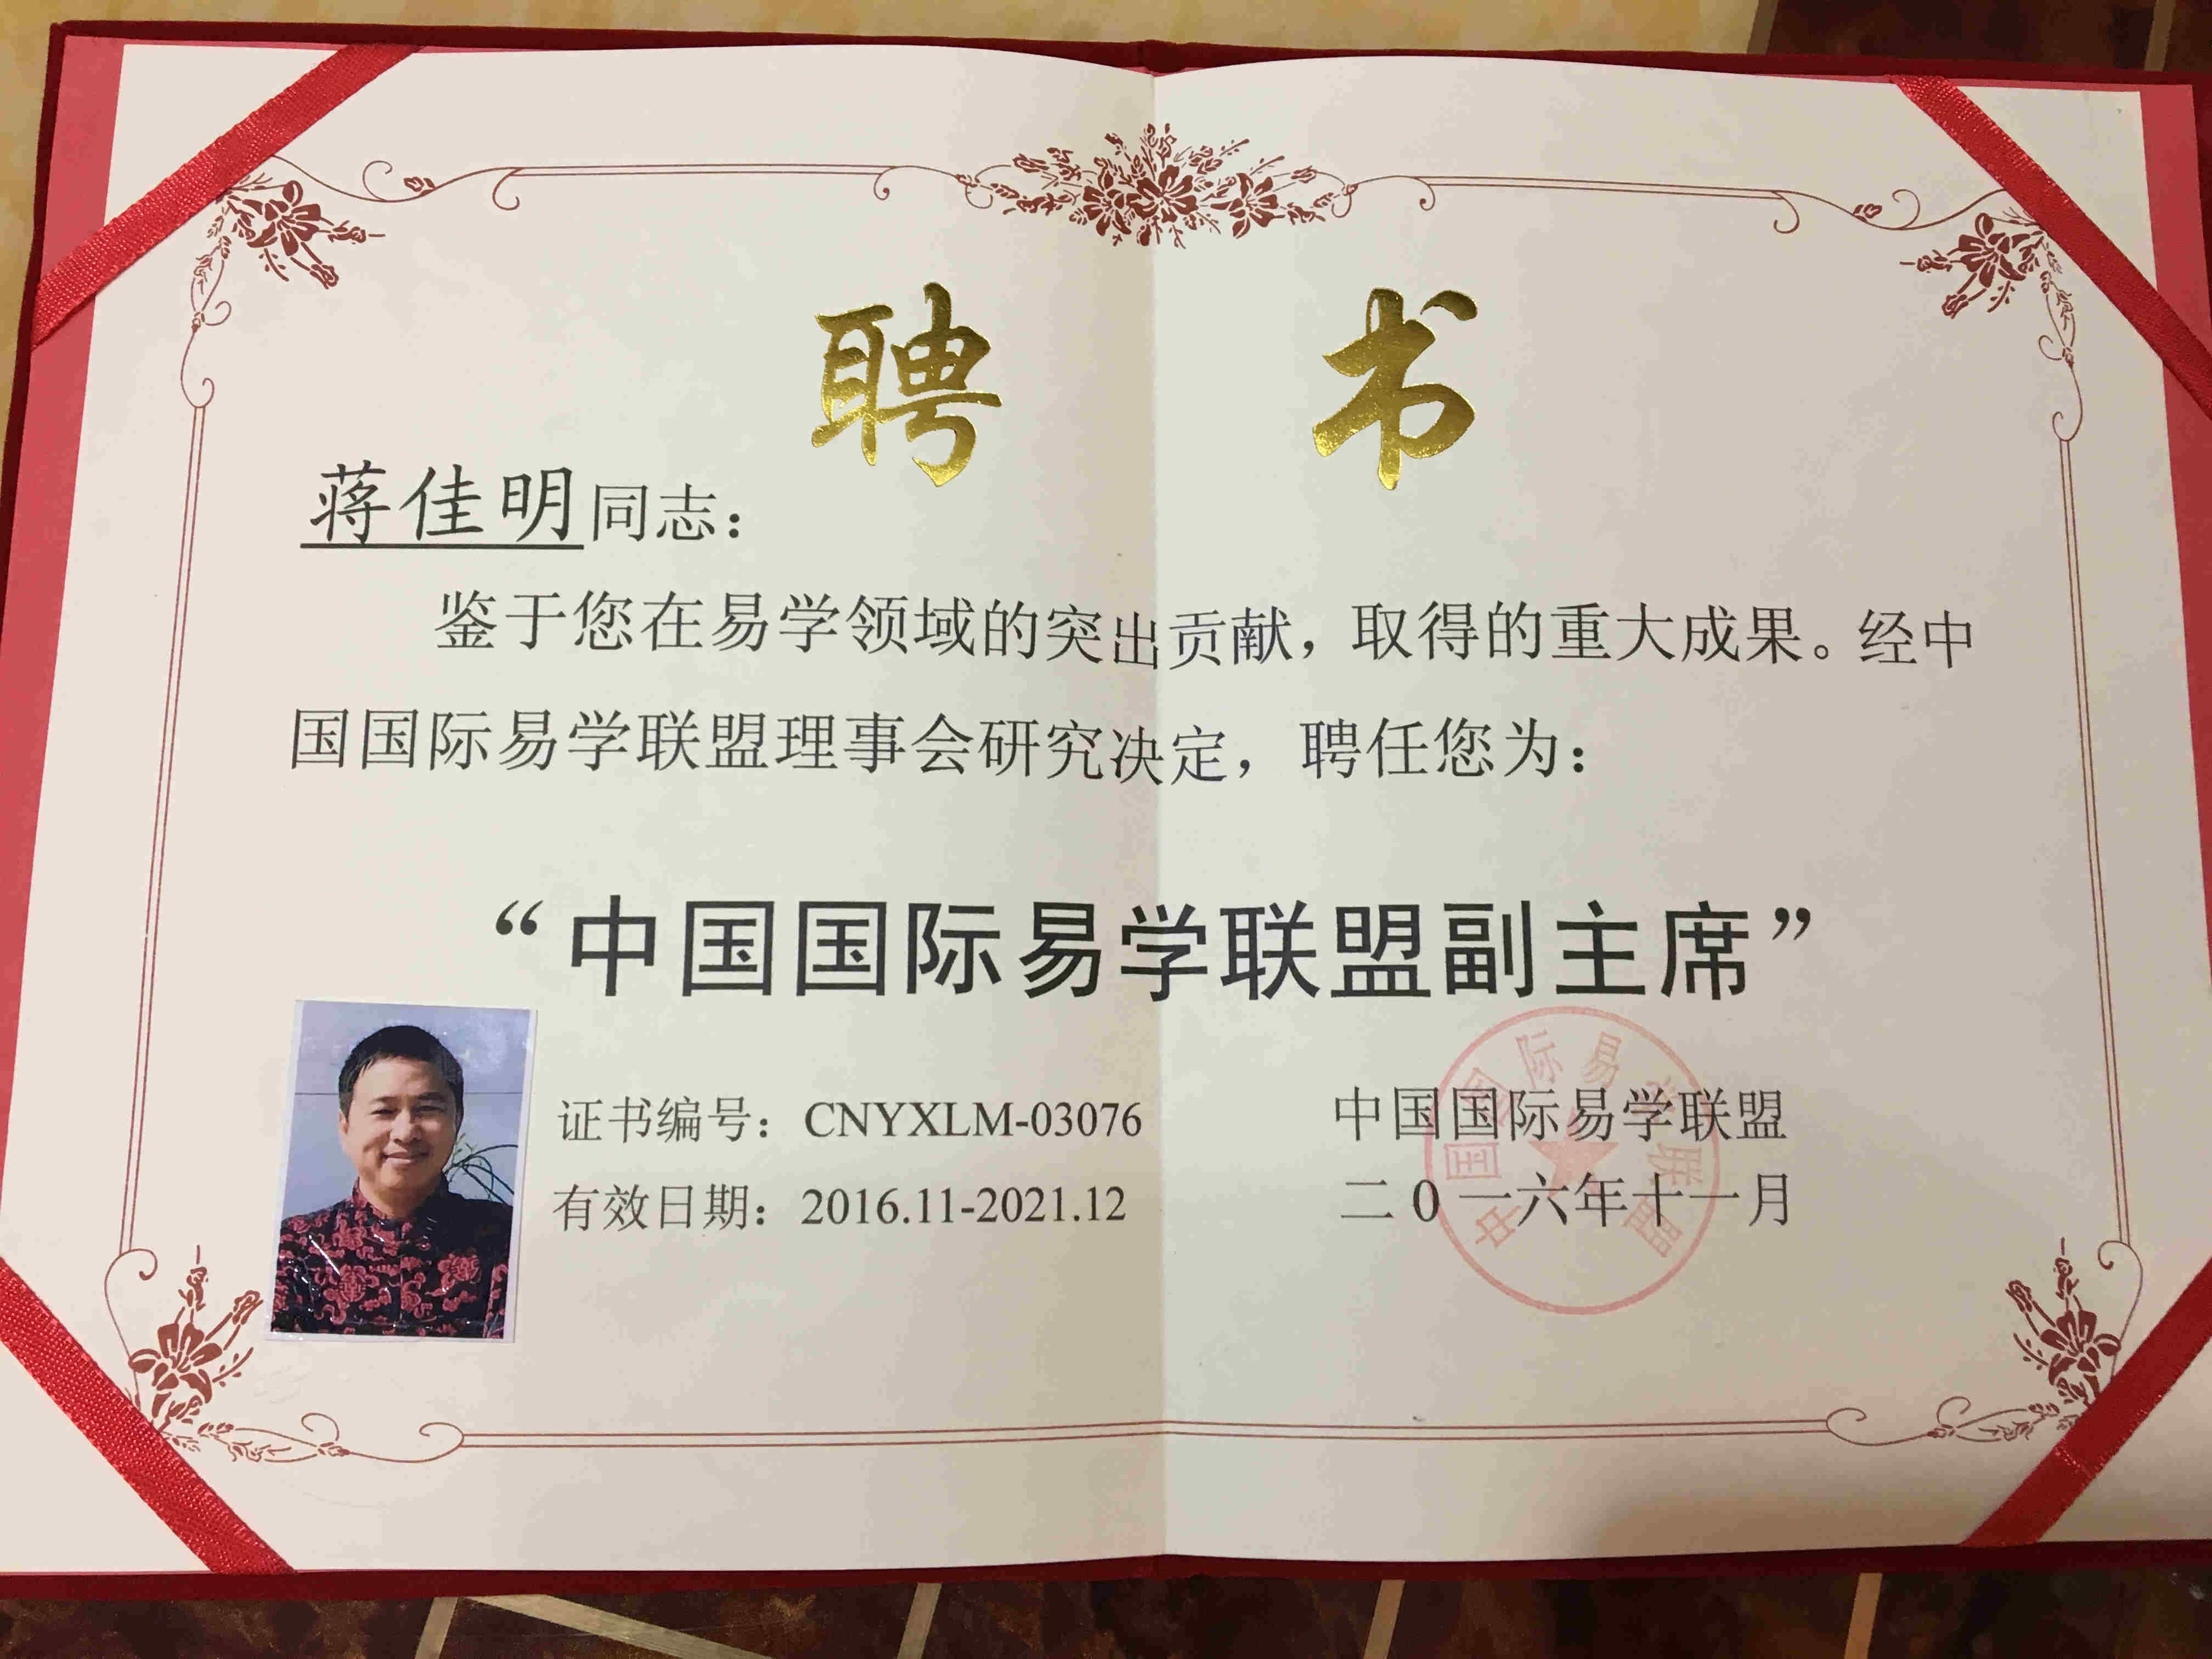 聘书
蒋佳明同志：
鉴于您在易学领域的突出贡献，取得的重大成果。经中
国国际易学联盟理事会研究决定，聘任您为：
“中国国际易学联盟副主席”
证书编号：CNYXLM-03076
有效日期：2016.11-2021.12
中国国际易学联盟
二0一六年十一月
中国国际易学联盟